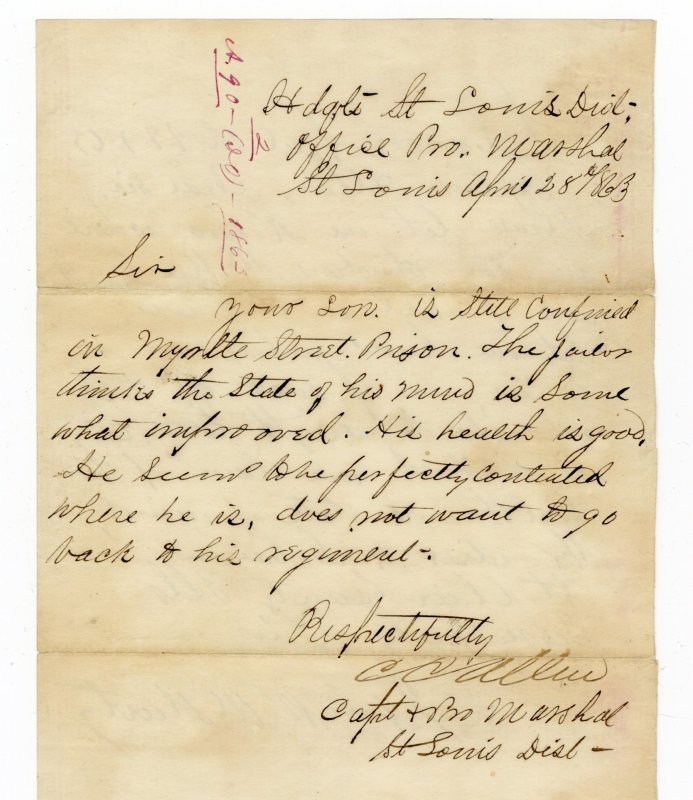 Hdqts St Louis Dist.
Office Pro. Marshal
St Louis April 28th 1863
Sir
your son. is still confined
in Myrtle Street. Prison. The jailor
thinks the state of his mind is some
what improved. His health is good.
He seems to be perfectly contented
where he is, does not want to go
back to his regiment.
Respectfully
Allen
Capt & Pro Marshal
St Louis Dist
2
1863